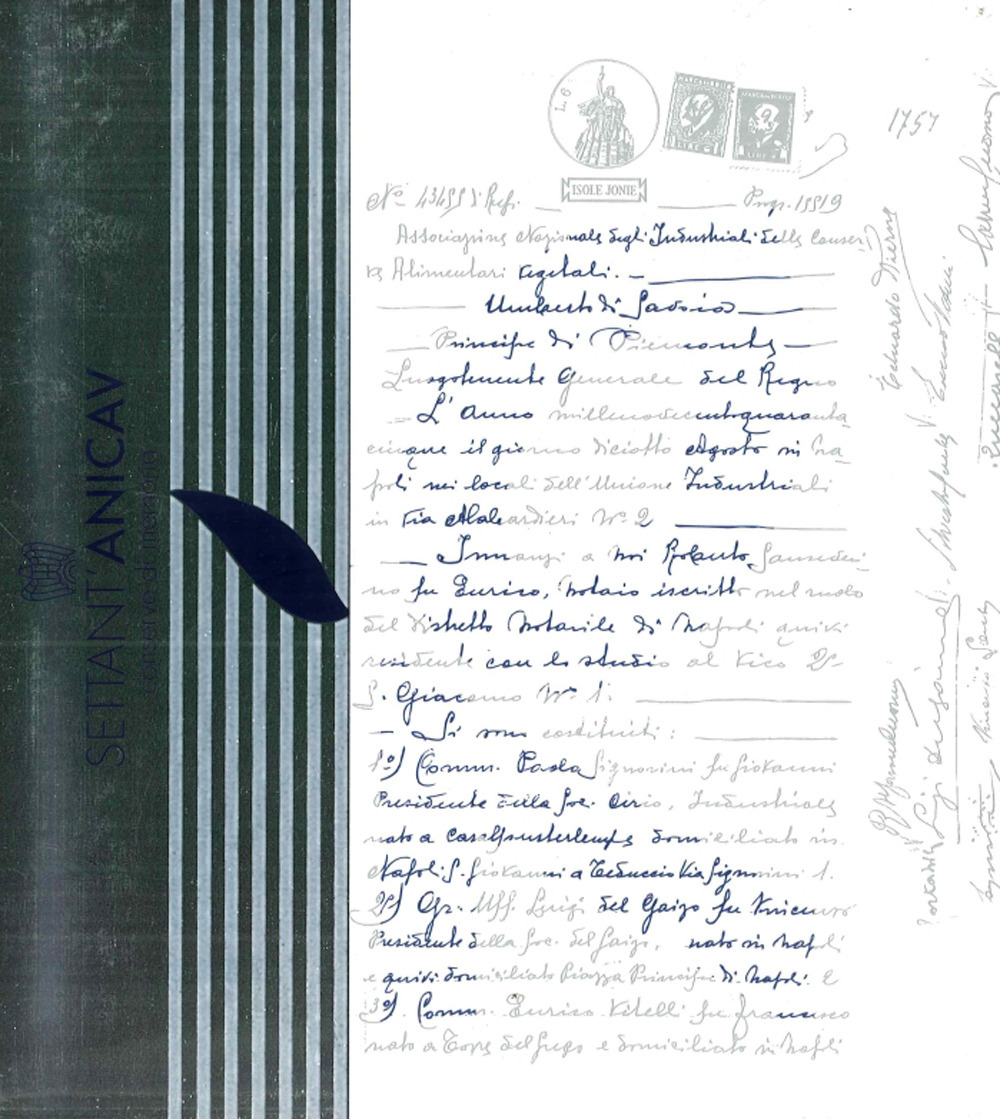 SETTANT'ANICAV
conserve di memoria
L. 6
MARCA DA BOLLO
LIRE
MARCA DA BOLLO
LIRE
ISOLE JONIE
1757
N° 43499 di Rep. Progr. 15519
Associazione Nazionale degli Industriali delle Conser-
ve Alimentari Vegetali. —
Umberto di Savoia
Principe di Piemonte
Luogotenente Generale del Regno
L'Anno millenovecentoquaranta
cinque il giorno diciotto Agosto in Na_
poli nei locali dell'Unione Industriali
in Via Alabardieri N° 2
Innanzi a noi Roberto Sanseveri-
no fu Enrico, notaio iscritto nel ruolo
del Distretto Notarile di Napoli quivi
residente con lo studio al Vico 2°
S. Giacomo N° 1.
— Si sono costituiti:
1°) Comm. Paolo Signorini fu Giovanni
Presidente della Soc. Cirio, Industriale
nato a domiciliato in
Napoli S. Giovanni a Teduccio Via Signorini 1.
2°) Gr. Uff. Luigi del Gaizo fu Vincenzo
Presidente della Soc. Del Gaizo, nato in Napoli
e quivi domiciliato Piazza Principe di Napoli. E
3°). Comm. Enrico Vitelli fu Francesco
nato a Torre del Greco e domiciliato in Napoli